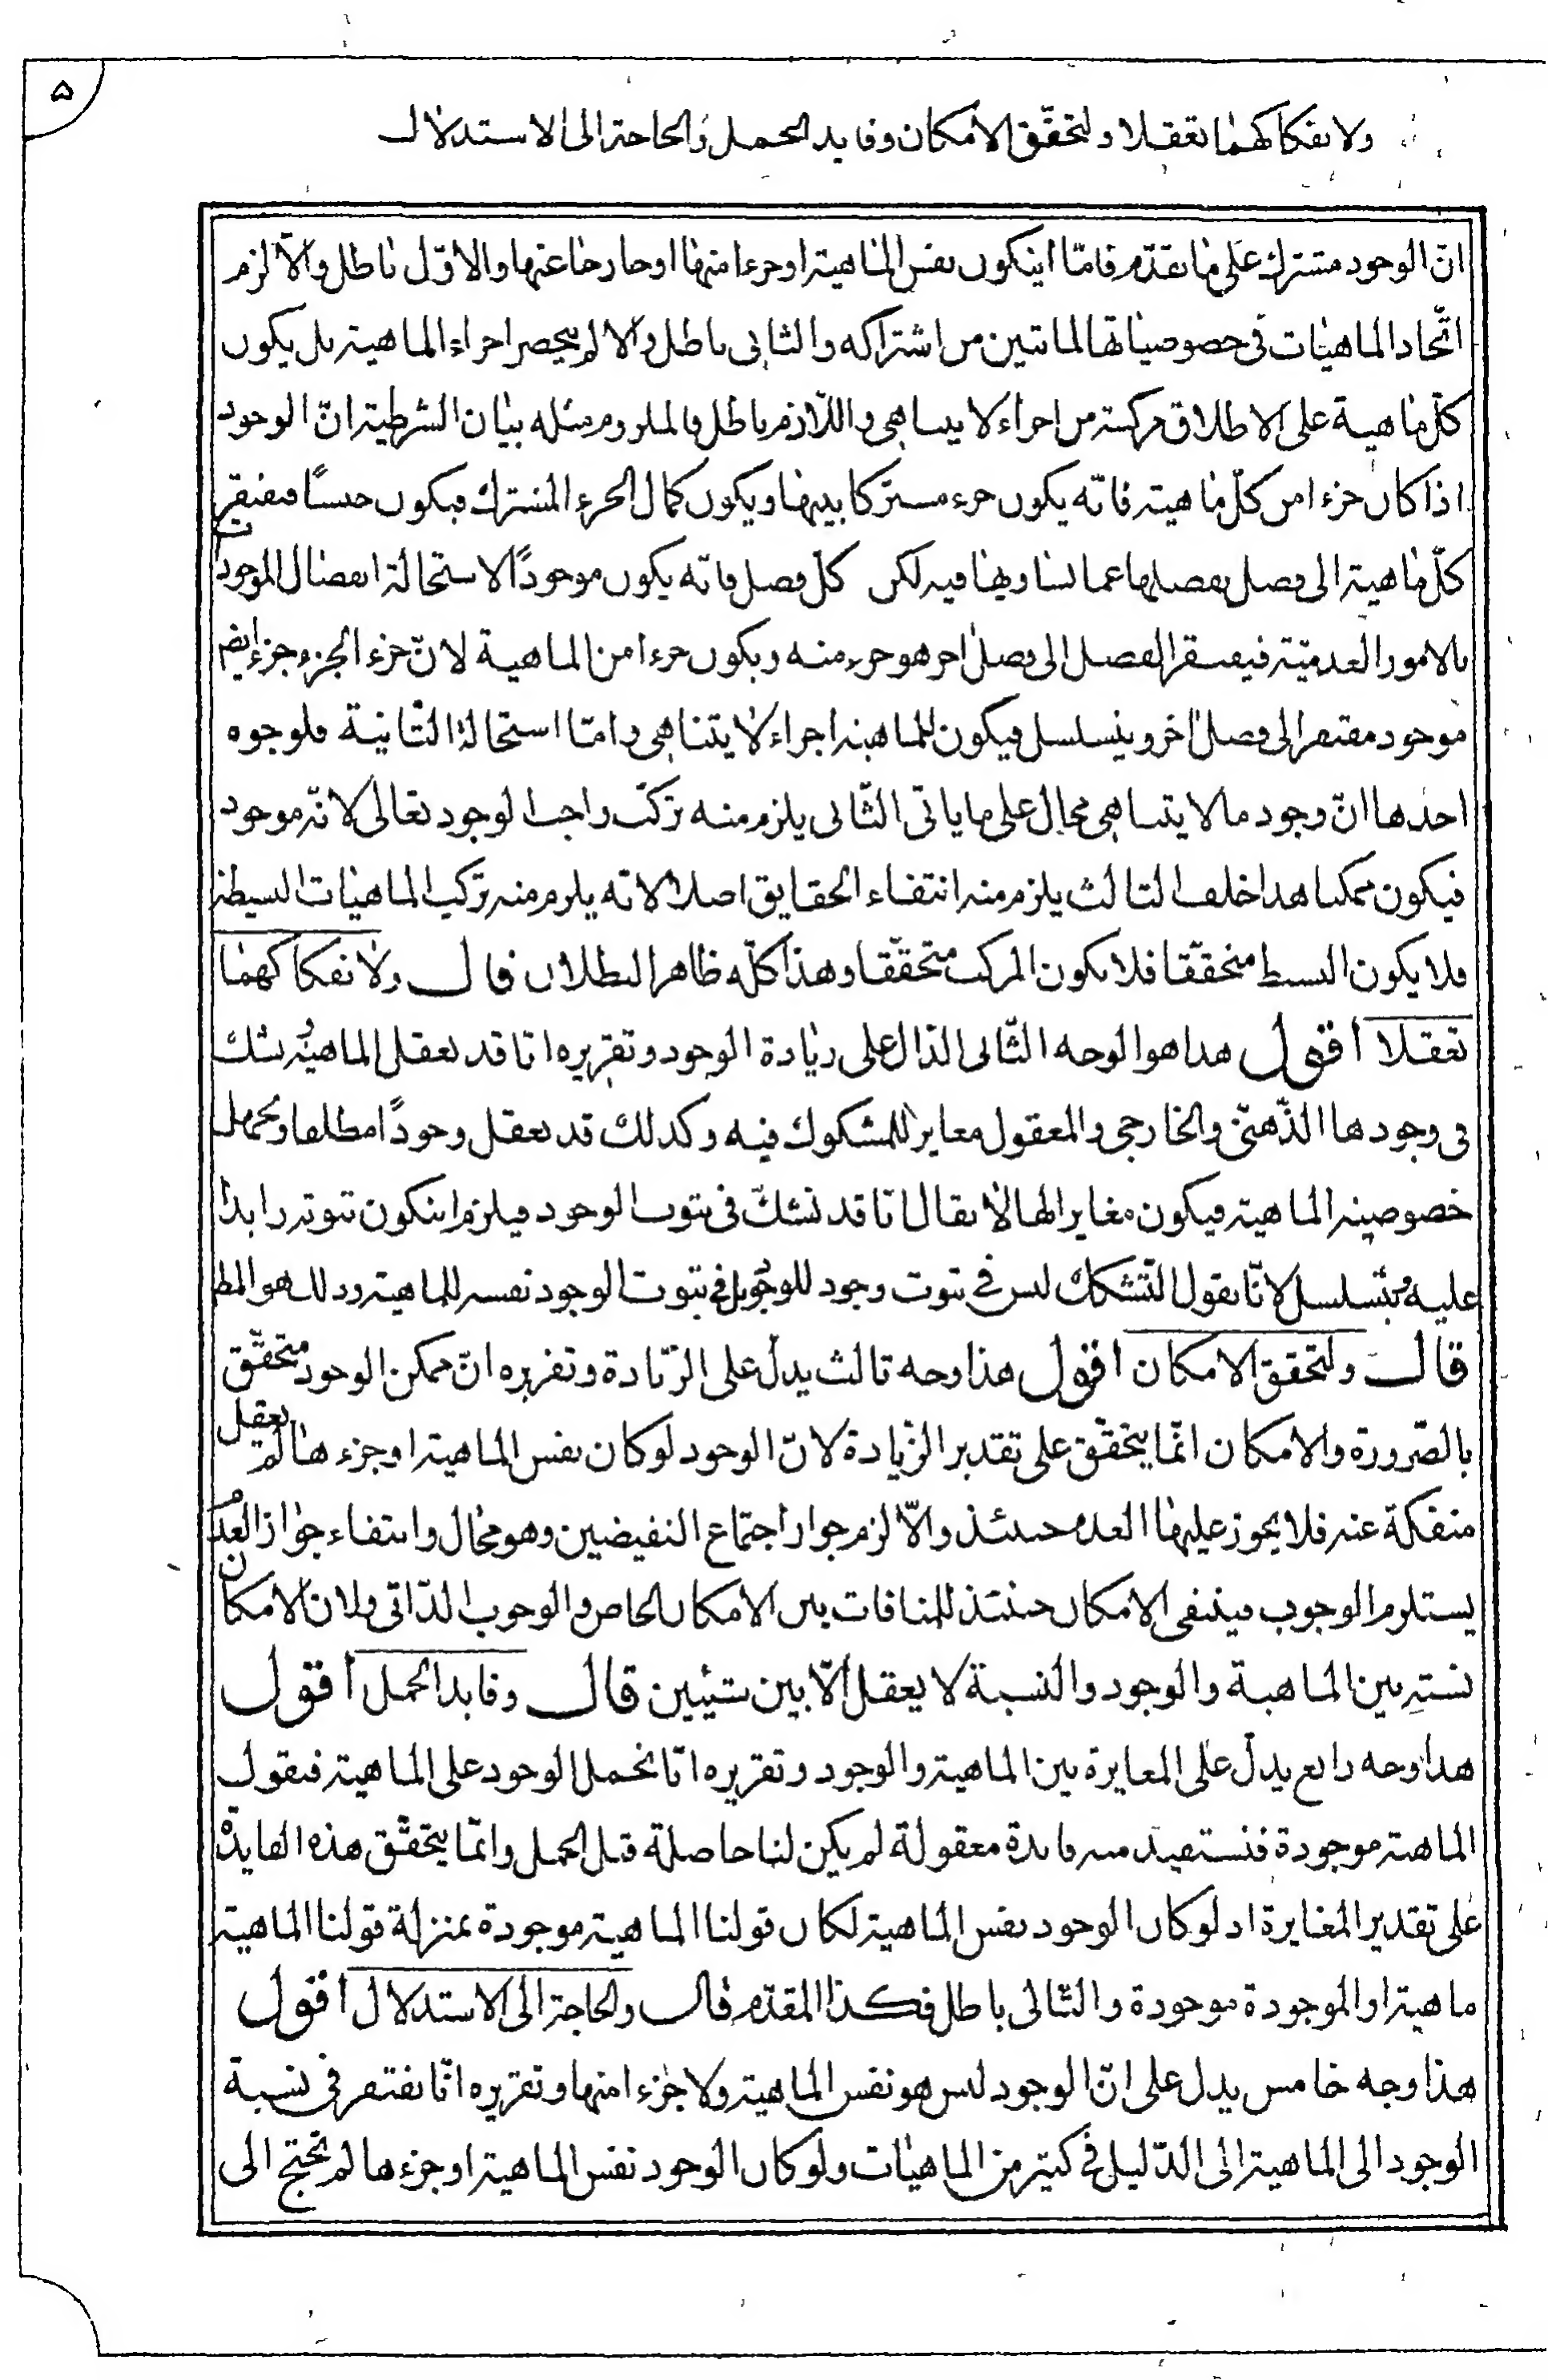 ۵
ولانفكاكهما تعقلا ولتحقّق الامكان وفايد الحمل والحاجة الى الاستدلال
انّ الوجود مشترك على ما تقدّم فامّا اين‍كون نفس الماهية او جزءا منها او خارجا عنها والاوّل باطل والّا لزم
اتّحاد الماهيّات فى خصوصياتها لما تبين من اشتراكه والثانى باطل والا لم ينحصر اجزاء الماهية بل يكون
كلّ ماهية على الاطلاق مركبة من اجزاء لا يتناهى واللّازم باطل فالملزوم مثله بيان الشرطية انّ الوجود
اذا كان جزءا من كلّ ماهية فانّه يكون جزء مشتركا بينها ويكون كمال الجزء المشترك فيكون جنسًا فيفتقر
كلّ ماهية الى فصل يفصلها عما يساويها فيه لكن كلّ فصل فانّه يكون موجودًا لاستحالة انفصال الموجودات
بالامور العدميّة فيفتقر الفصل الى فصل اخر هو جزء منه ويكون جزءا من الماهية لانّ جزء الجزء جزء ايضا
موجود مفتقر الى فصل اخر ويتسلسل فيكون للماهية اجزاء لا يتناهى وامّا استحالة الثّانية فلوجوه
احدها انّ وجود ما لا يتناهى محال على ما ياتى الثّانى يلزم منه تركّب واجب الوجود تعالى لانّه موجود
فيكون ممكنا هذا خلف الثالث يلزم منه انتفاء الحقايق اصلا لانّه يلزم منه تركيب الماهيات البسيطة
فلا يكون البسيط متحقّقا فلا يكون المركب متحقّقا وهذا كلّه ظاهر البطلان قال ولانفكاكهما
تعقلا اقول هذا هو الوجه الثّانى الدّال على زيادة الوجود وتقريره انّا قد نعقل الماهية ونشك
فى وجودها الذّهنىّ والخارجى والمعقول مغاير للمشكوك فيه وكذلك قد نعقل وجودًا مطلقا ونجهل
خصوصية الماهية فيكون مغايرا لها لا يقال انّا قد نشكّ فى ثبوت الوجود فيلزم اين‍كون ثبوته زايدا
عليه ويتسلسل لانّا نقول التّشكك ليس فى ثبوت وجود للوجود بل فى ثبوت الوجود نفسه للماهية وذلك هو المط
قال ولتحقق الامكان اقول هذا وجه ثالث يدلّ على الزّيادة وتقريره انّ ممكن الوجود متحقّق
بالضّرورة والامكان انّما يتحقّق على تقدير الزّيادة لانّ الوجود لو كان نفس الماهية او جزءها لم يعقل
منفكة عنه فلا يجوز عليها العدم حينئذ والّا لزم جواز اجتماع النقيضين وهو محال وانتفاء جواز العدم
يستلزم الوجوب فينتفى الامكان حينئذ للمنافات بين الامكان الخاص والوجوب الذّاتى ولان الامكان
نسبة بين الماهية والوجود والنسبة لا يعقل الّا بين شيئين قال وفايد الحمل اقول
هذا وجه رابع يدلّ على المغايرة بين الماهية والوجود وتقريره انّا نحمل الوجود على الماهية فنقول
الماهية موجودة فنستفيد منه فايدة معقولة لم يكن لنا حاصلة قبل الحمل وانّما يتحقّق هذه الفايدة
على تقدير المغايرة اذ لو كان الوجود نفس الماهية لكان قولنا الماهية موجودة بمنزلة قولنا الماهية
ماهية او الموجودة موجودة والتّالى باطل فكذا المقدّم قال والحاجة الى الاستدلال اقول
هذا وجه خامس يدل على انّ الوجود ليس هو نفس الماهية ولا جزءا منها وتقريره انّا نفتقر فى نسبة
الوجود الى الماهية الى الدّليل فى كثير من الماهيات ولو كان الوجود نفس الماهية او جزءها لم نحتج الى